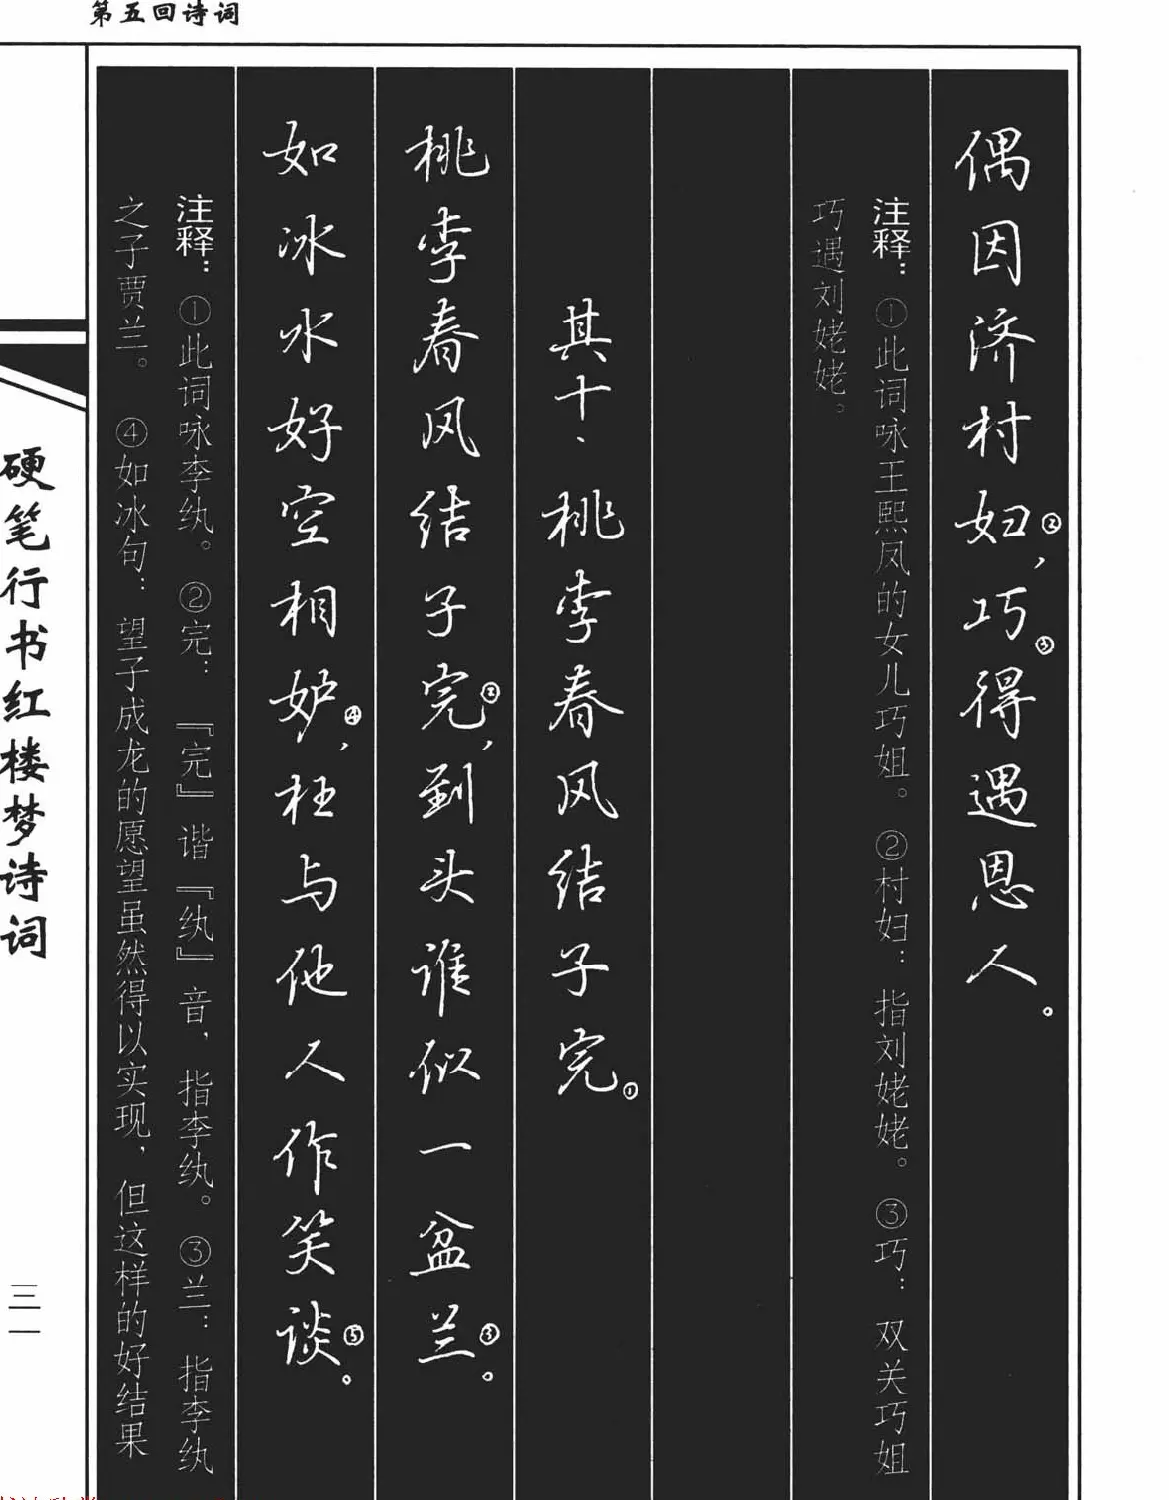 第五回诗词
偶因济村妇②，巧③得遇恩人。
注释：①此词咏王熙凤的女儿巧姐。②村妇：指刘姥姥。③巧：双关巧姐
巧遇刘姥姥。
其十、桃李春风结子完①
桃李春风结子完②，到头谁似一盆兰③。
如冰水好空相妒④，枉与他人作笑谈⑤。
注释：①此词咏李纨。②完：『完』谐『纨』音，指李纨。③兰：指李纨
之子贾兰。④如冰句：望子成龙的愿望虽然得以实现，但这样的好结果
硬笔行书红楼梦诗词
三一